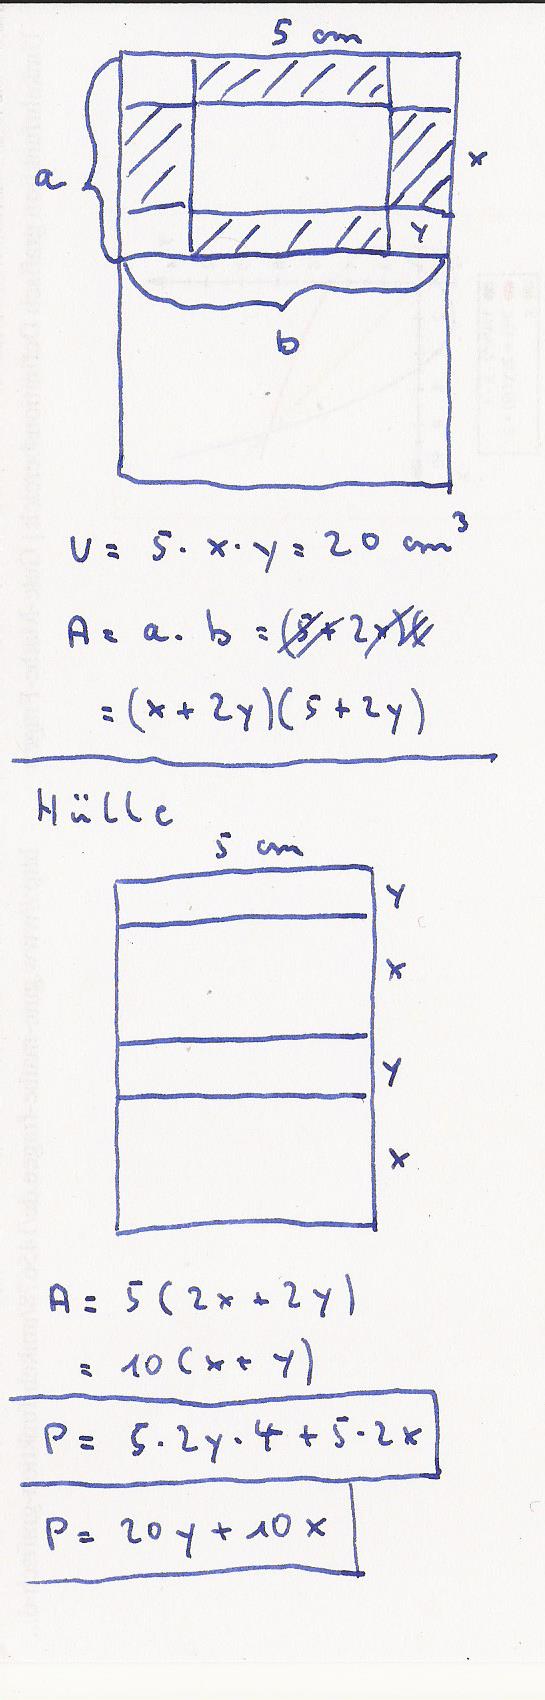 5 cm
a
x
y
b
V = 5 · x · y = 20 cm³
A = a · b = (5 + 2x)(
= (x + 2y)(5 + 2y)
Hülle
5 cm
y
x
y
x
A = 5(2x + 2y)
= 10(x + y)
P = 5 · 2y · 4 + 5 · 2x
P = 20y + 10x